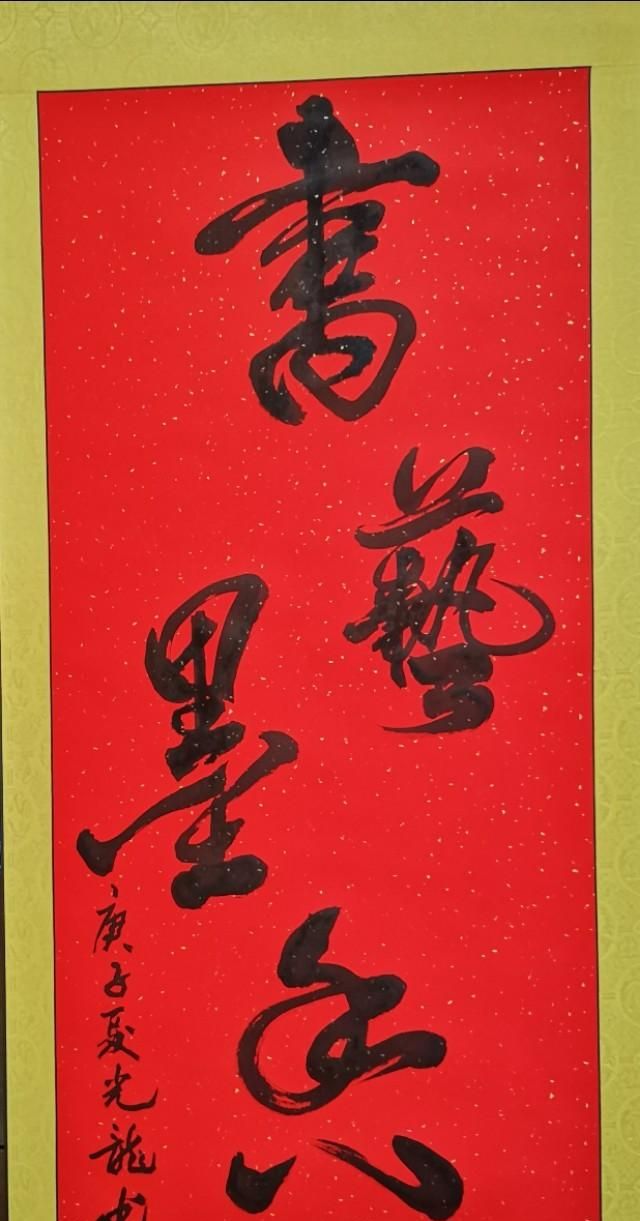 書
藝
墨
香
庚子夏光龍